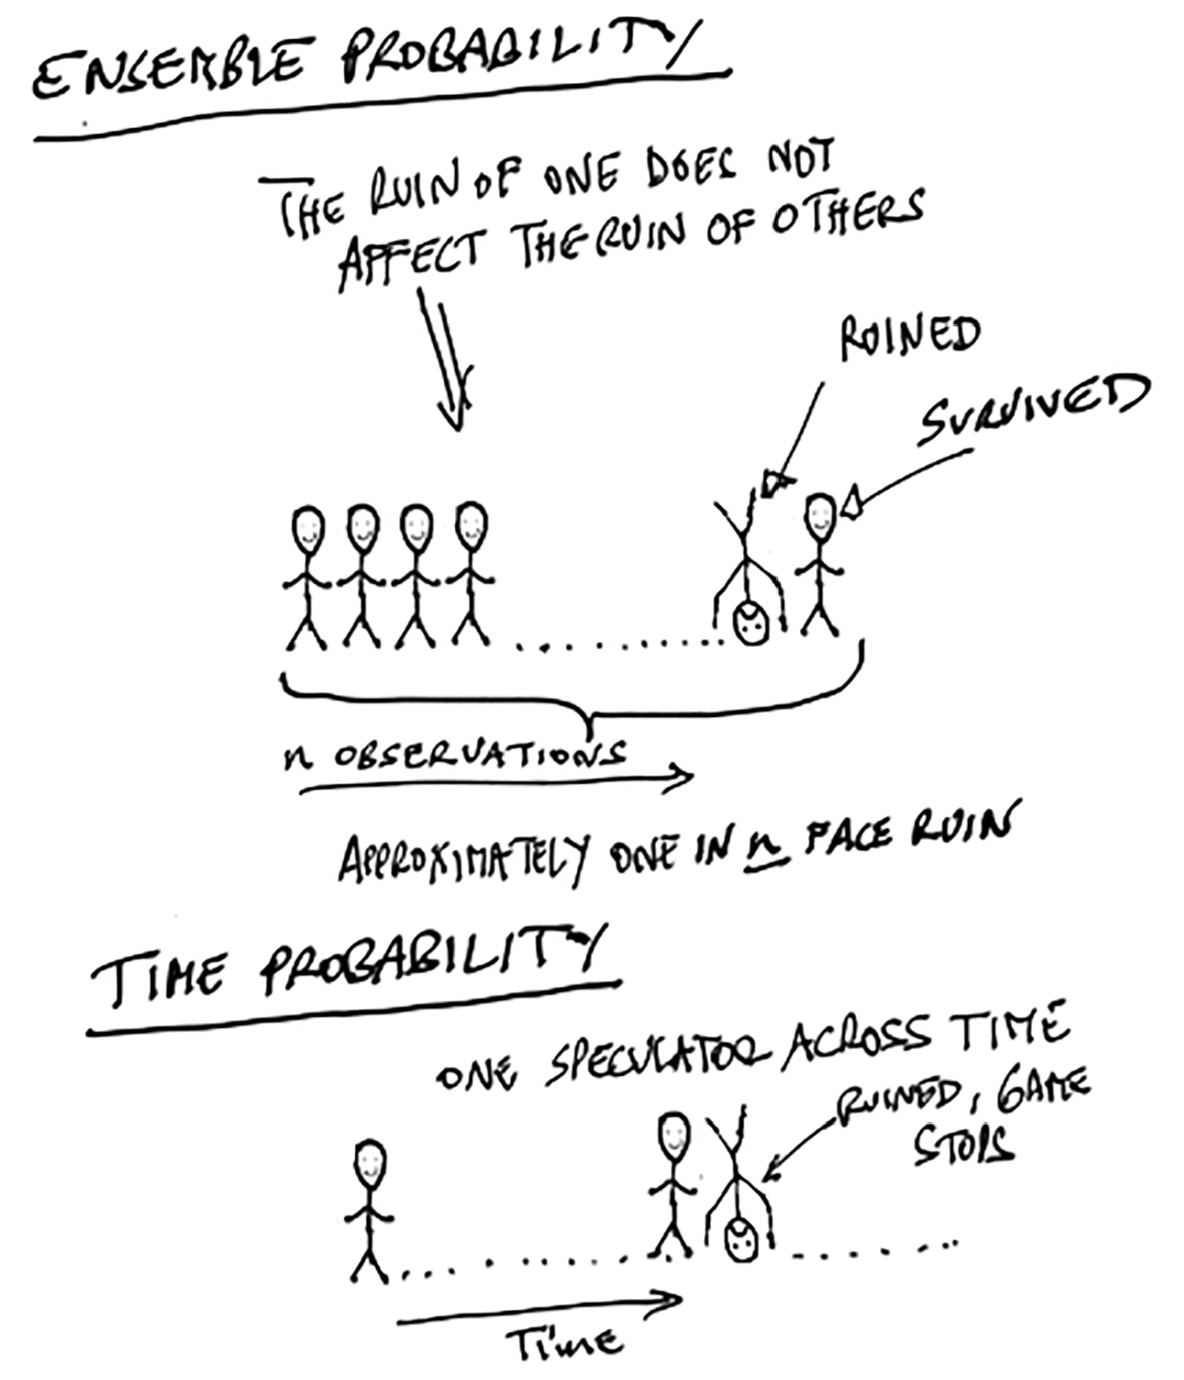 ENSEMBLE PROBABILITY
THE RUIN OF ONE DOES NOT
AFFECT THE RUIN OF OTHERS
RUINED
SURVIVED
n OBSERVATIONS
APPROXIMATELY ONE IN n FACE RUIN
TIME PROBABILITY
ONE SPECULATOR ACROSS TIME
RUINED, GAME
STOPS
Time